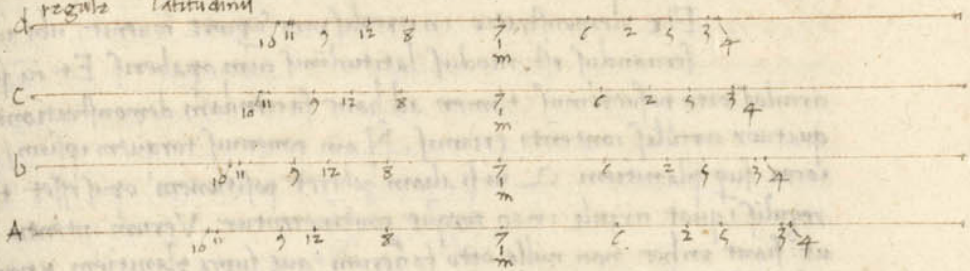 regule latitudinum
d 10 11 9 12 8 7 6 2 5 3 4
m
c 10 11 9 12 8 7 6 2 5 3 4
m
b 10 11 9 12 8 7 6 2 5 3 4
m
A 10 11 9 12 8 7 6 2 5 3 4
m